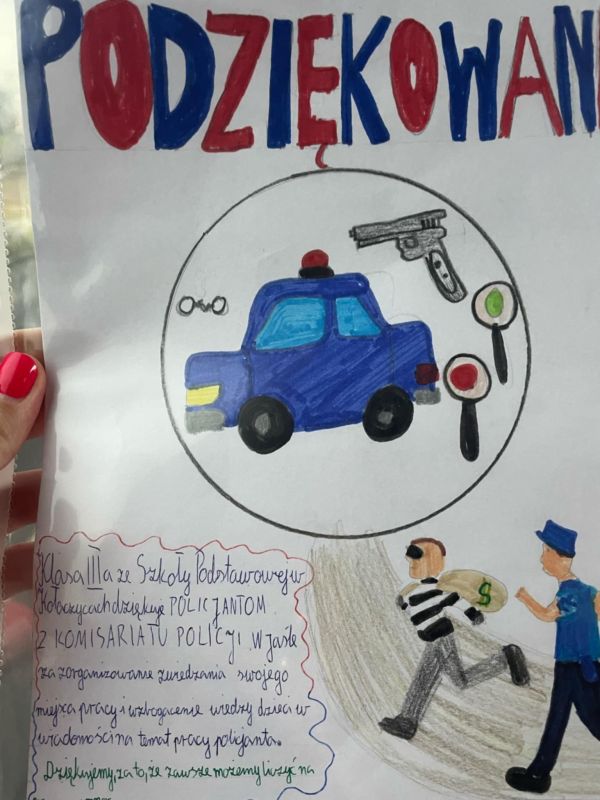 PODZIĘKOWAN
Klasa III a ze Szkoły Podstawowej w
Kołaczycach dziękuje POLICJANTOM
Z KOMISARIATU POLICJI W Jaśle
za zorganizowanie zwiedzania swojego
miejsca pracy i wzbogacenie wiedzy dzieci w
wiadomości na temat pracy policjanta.
Dziękujemy, za to, że zawsze możemy liczyć na
$